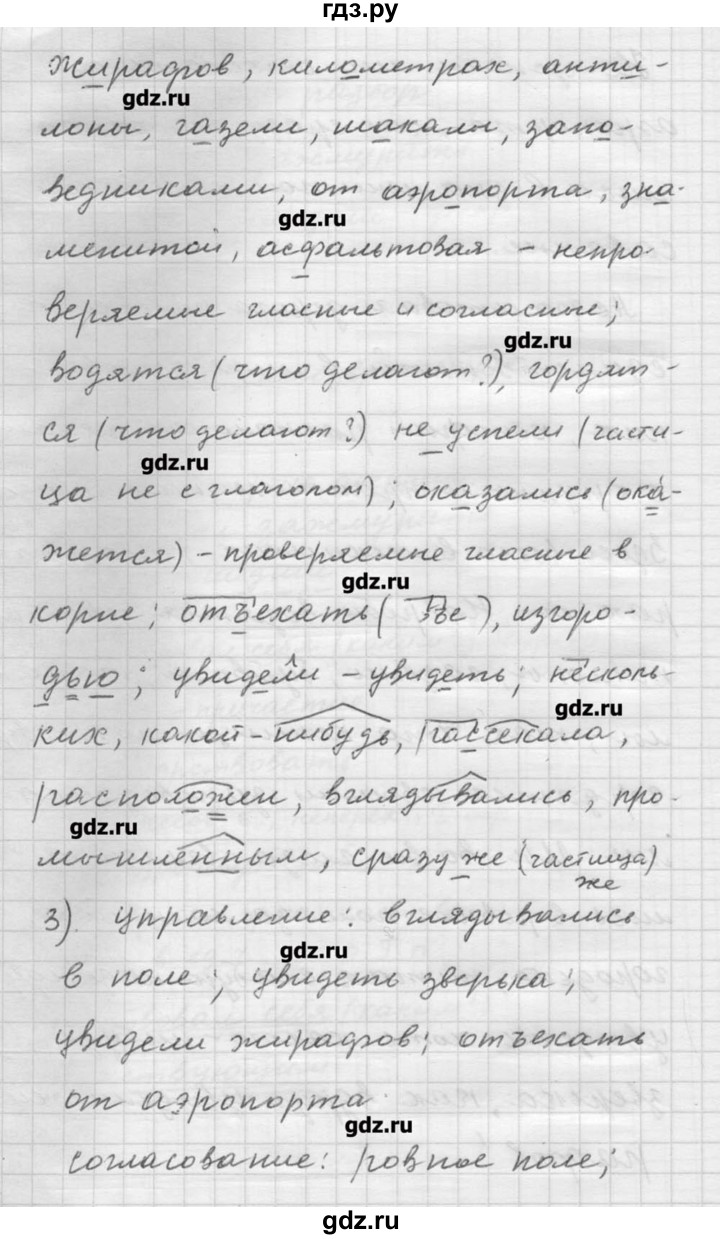 гдз.ру
жирафов, километрах, анти-
gdz.ru
лопы, газели, шакалы, запо-
ведниками, от аэропорта, зна-
gdz.ru
менитой, асфальтовая – непро-
веряемые гласные и согласные;
gdz.ru
водятся (что делают?), гордят-
ся (что делают?) не успели (части-
gdz.ru
ца не с глаголом); оказались (ока́-
жется) – проверяемые гласные в
gdz.ru
корне; отъехать (ъе), изгоро-
дью; увидели – увидеть; несколь-
gdz.ru
ких, какой-нибудь, рассекала,
расположен, вглядывались, про-
gdz.ru
мышленным, сразу же (частица)
же
3). управление: вглядывались
gdz.ru
в поле; увидеть зверька;
увидели жирафов; отъехать
от аэропорта
gdz.ru
согласование: ровное поле;
gdz.ru